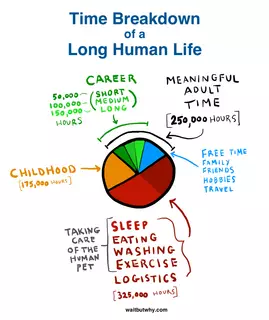 Time Breakdown
of a
Long Human Life
CAREER
50,000 (SHORT
100,000 MEDIUM
150,000 LONG)
HOURS
MEANINGFUL
ADULT
TIME
[250,000 HOURS]
CHILDHOOD
[175,000 HOURS]
FREE TIME
FAMILY
FRIENDS
HOBBIES
TRAVEL
TAKING
CARE
OF THE
HUMAN
PET
SLEEP
EATING
WASHING
EXERCISE
LOGISTICS
[325,000 HOURS]
waitbutwhy.com